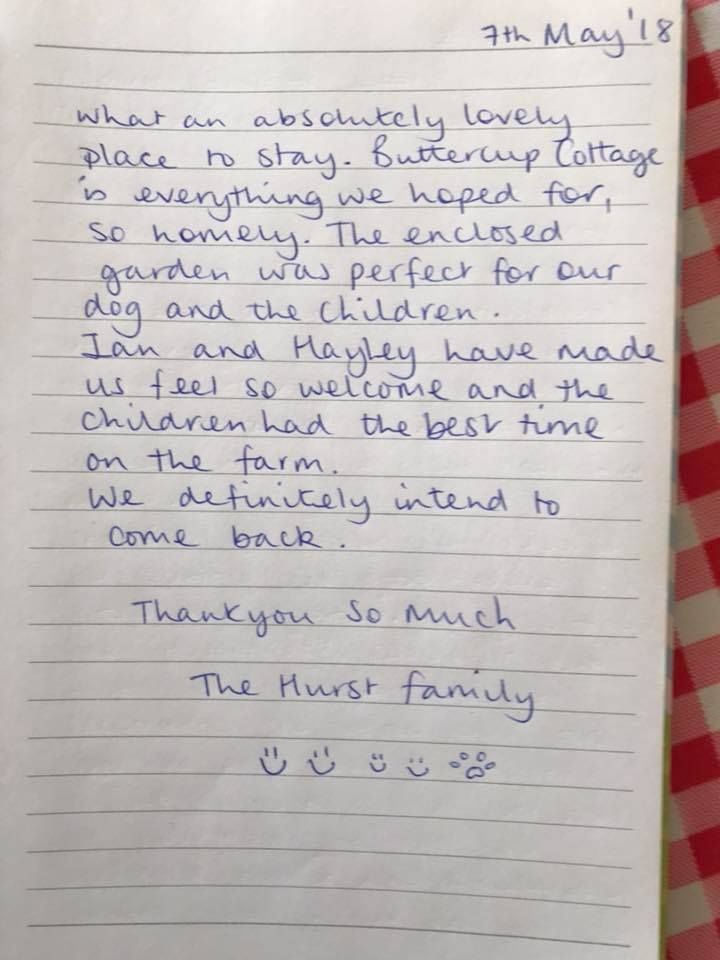 7th May '18
What an absolutely lovely
place to stay. Buttercup Cottage
is everything we hoped for,
so homely. The enclosed
garden was perfect for our
dog and the children.
Ian and Hayley have made
us feel so welcome and the
children had the best time
on the farm.
We definitely intend to
come back.
Thankyou so much
The Hurst family